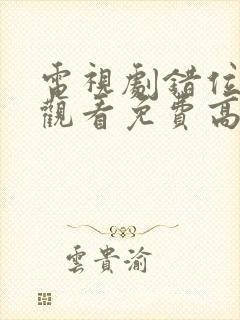 電視劇錯位
觀看免費高
雲貴渝